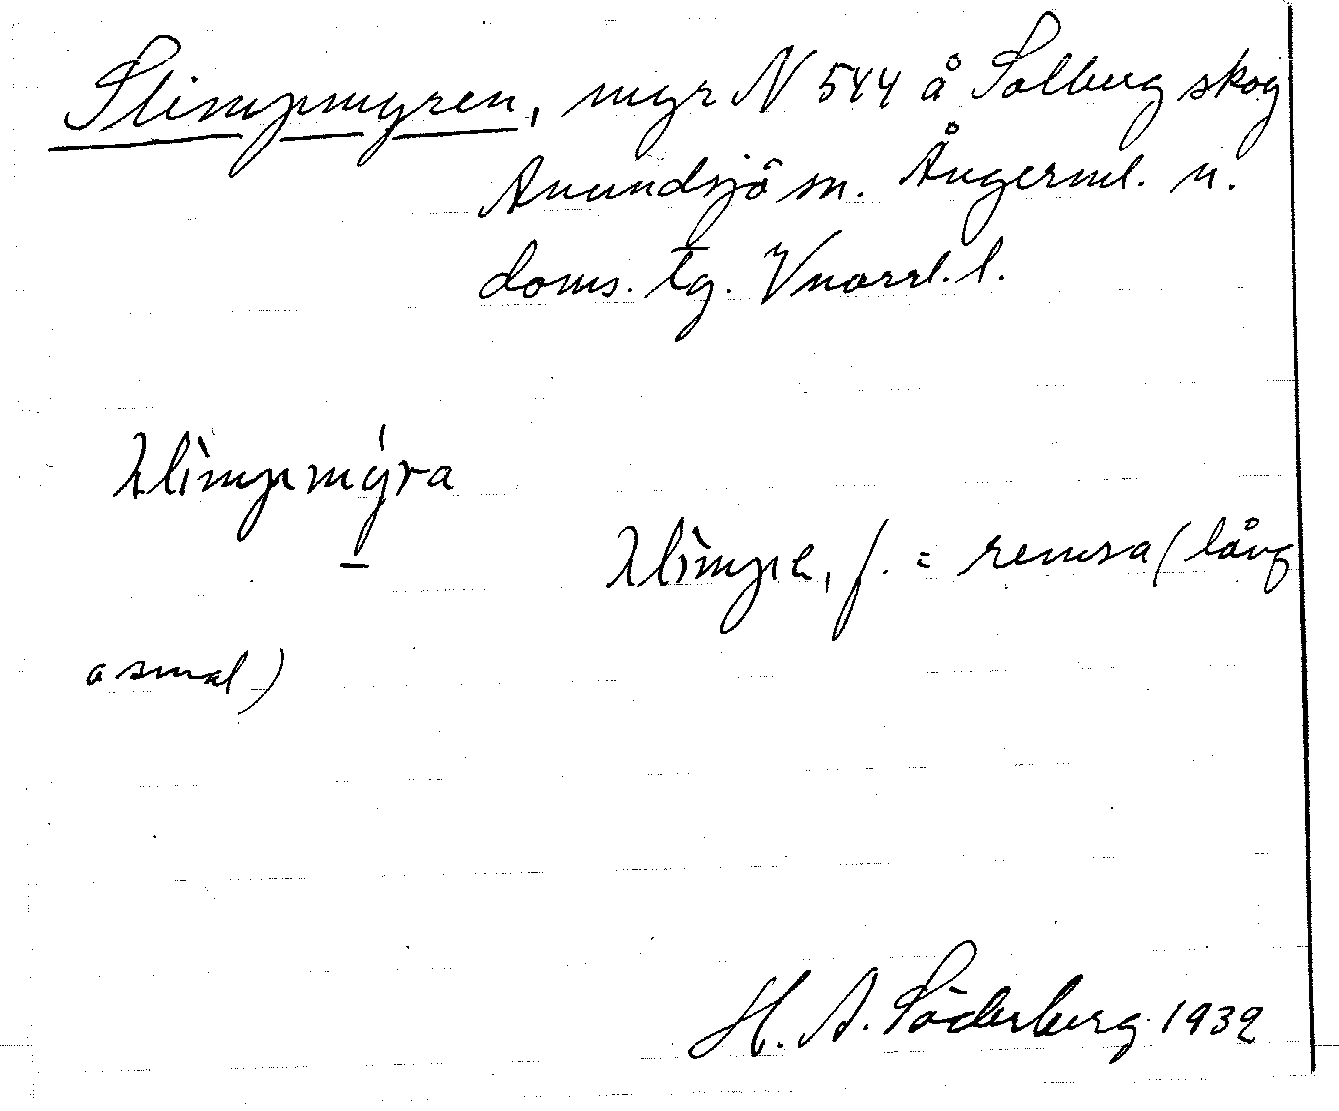 Slimpmyren, myr N 544 å Solberg skog
Anundsjö sn. Ångerml. n.
doms. tg. Vnorrl. l.
ƛìmpmy̍ra
ƛìmpe, f. = remsa (lång
o smal)
H. A. Söderberg. 1932